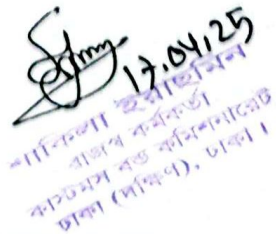 17.04.25
শাকিলা ইয়াছমিন
রাজস্ব কর্মকর্তা
কাস্টমস বন্ড কমিশনারেট
ঢাকা (দক্ষিণ), ঢাকা।